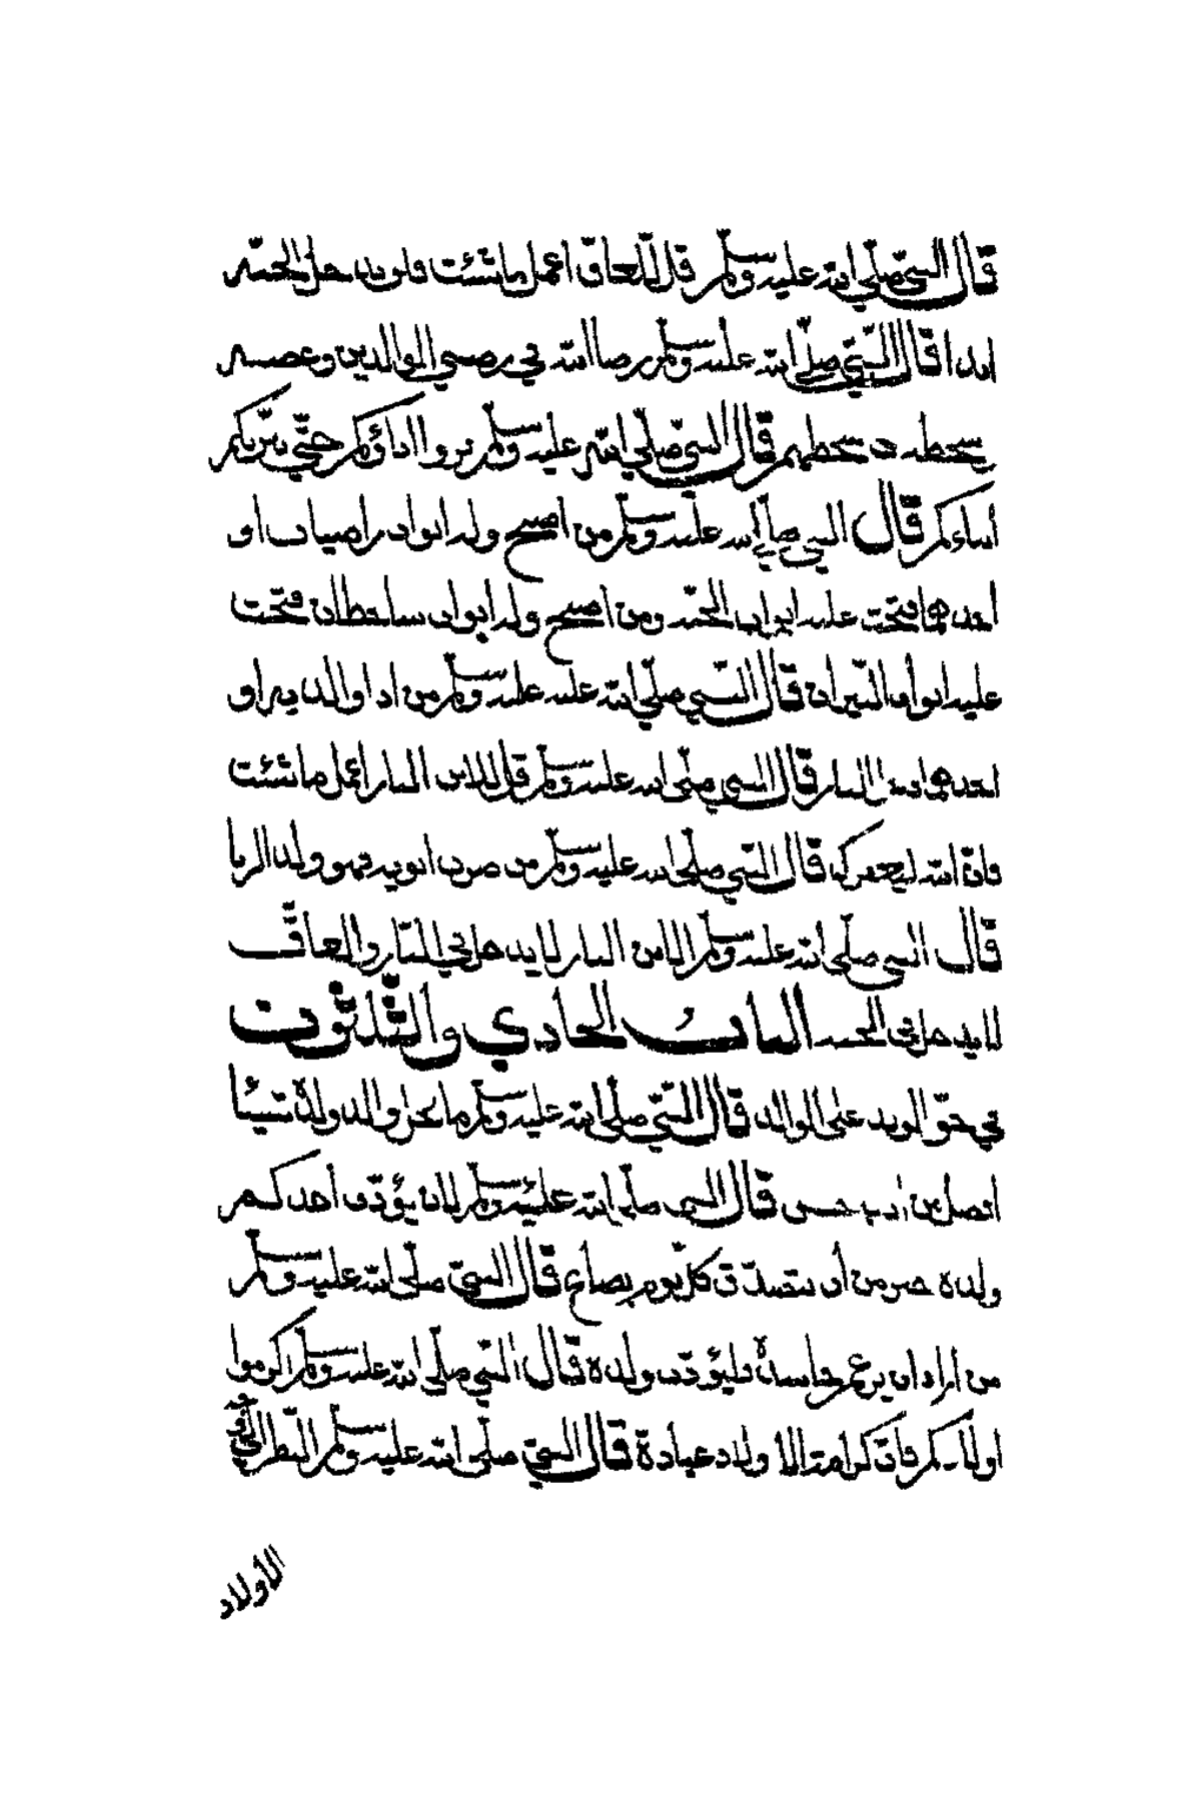 قال النبي صلى الله عليه وسلم قل للعاق اعمل ما شئت فلن تدخل الجنة
ابدا قال النبي صلى الله عليه وسلم رضا الله في رضى الوالدين وغضبه
سخطه في سخطهم قال النبي صلى الله عليه وسلم بروا اباؤكم حتى يبركم
أبناءكم قال النبي صلى الله عليه وسلم من اصبح وله ابوان راضيان او
احدهما فتحت عليه ابواب الجنة ومن اصبح وله ابوان ساخطان فتحت
عليه ابواب النيران قال النبي صلى الله عليه عليه وسلم من اذا والديه او
احدهما دخل النار قال النبي صلى الله عليه وسلم قل للابن البار اعمل ما شئت
فانّ الله ليغفرك قال النبي صلى الله عليه وسلم من ضرب ابويه فهو ولد الزنا
قال النبي صلّى الله عليه وسلم الابن البار لا يدخل في النّار والعاقّ
لا يدخل في الجنة الباب الحادي والثّلثون
في حقّ الولد على الوالد قال النبيّ صلى الله عليه وسلم ما نحل والد ولدهُ شيئا
افضل من ادب حسن قال النبي صلى الله عليه وسلم لان يؤدّب أحدكم
ولده خير من أن يتصدّق كلّ يوم بصاع قال النبيّ صلّى الله عليه وسلّم
من أراد ان يرغم حاسدهُ فليؤدّب ولده قال النّبي صلّى الله عليه وسلّم اكرموا
اولادكم فانّ كرامة الأولاد عبادة قال النبيّ صلّى الله عليه وسلّم النّظر الى
الأولاد